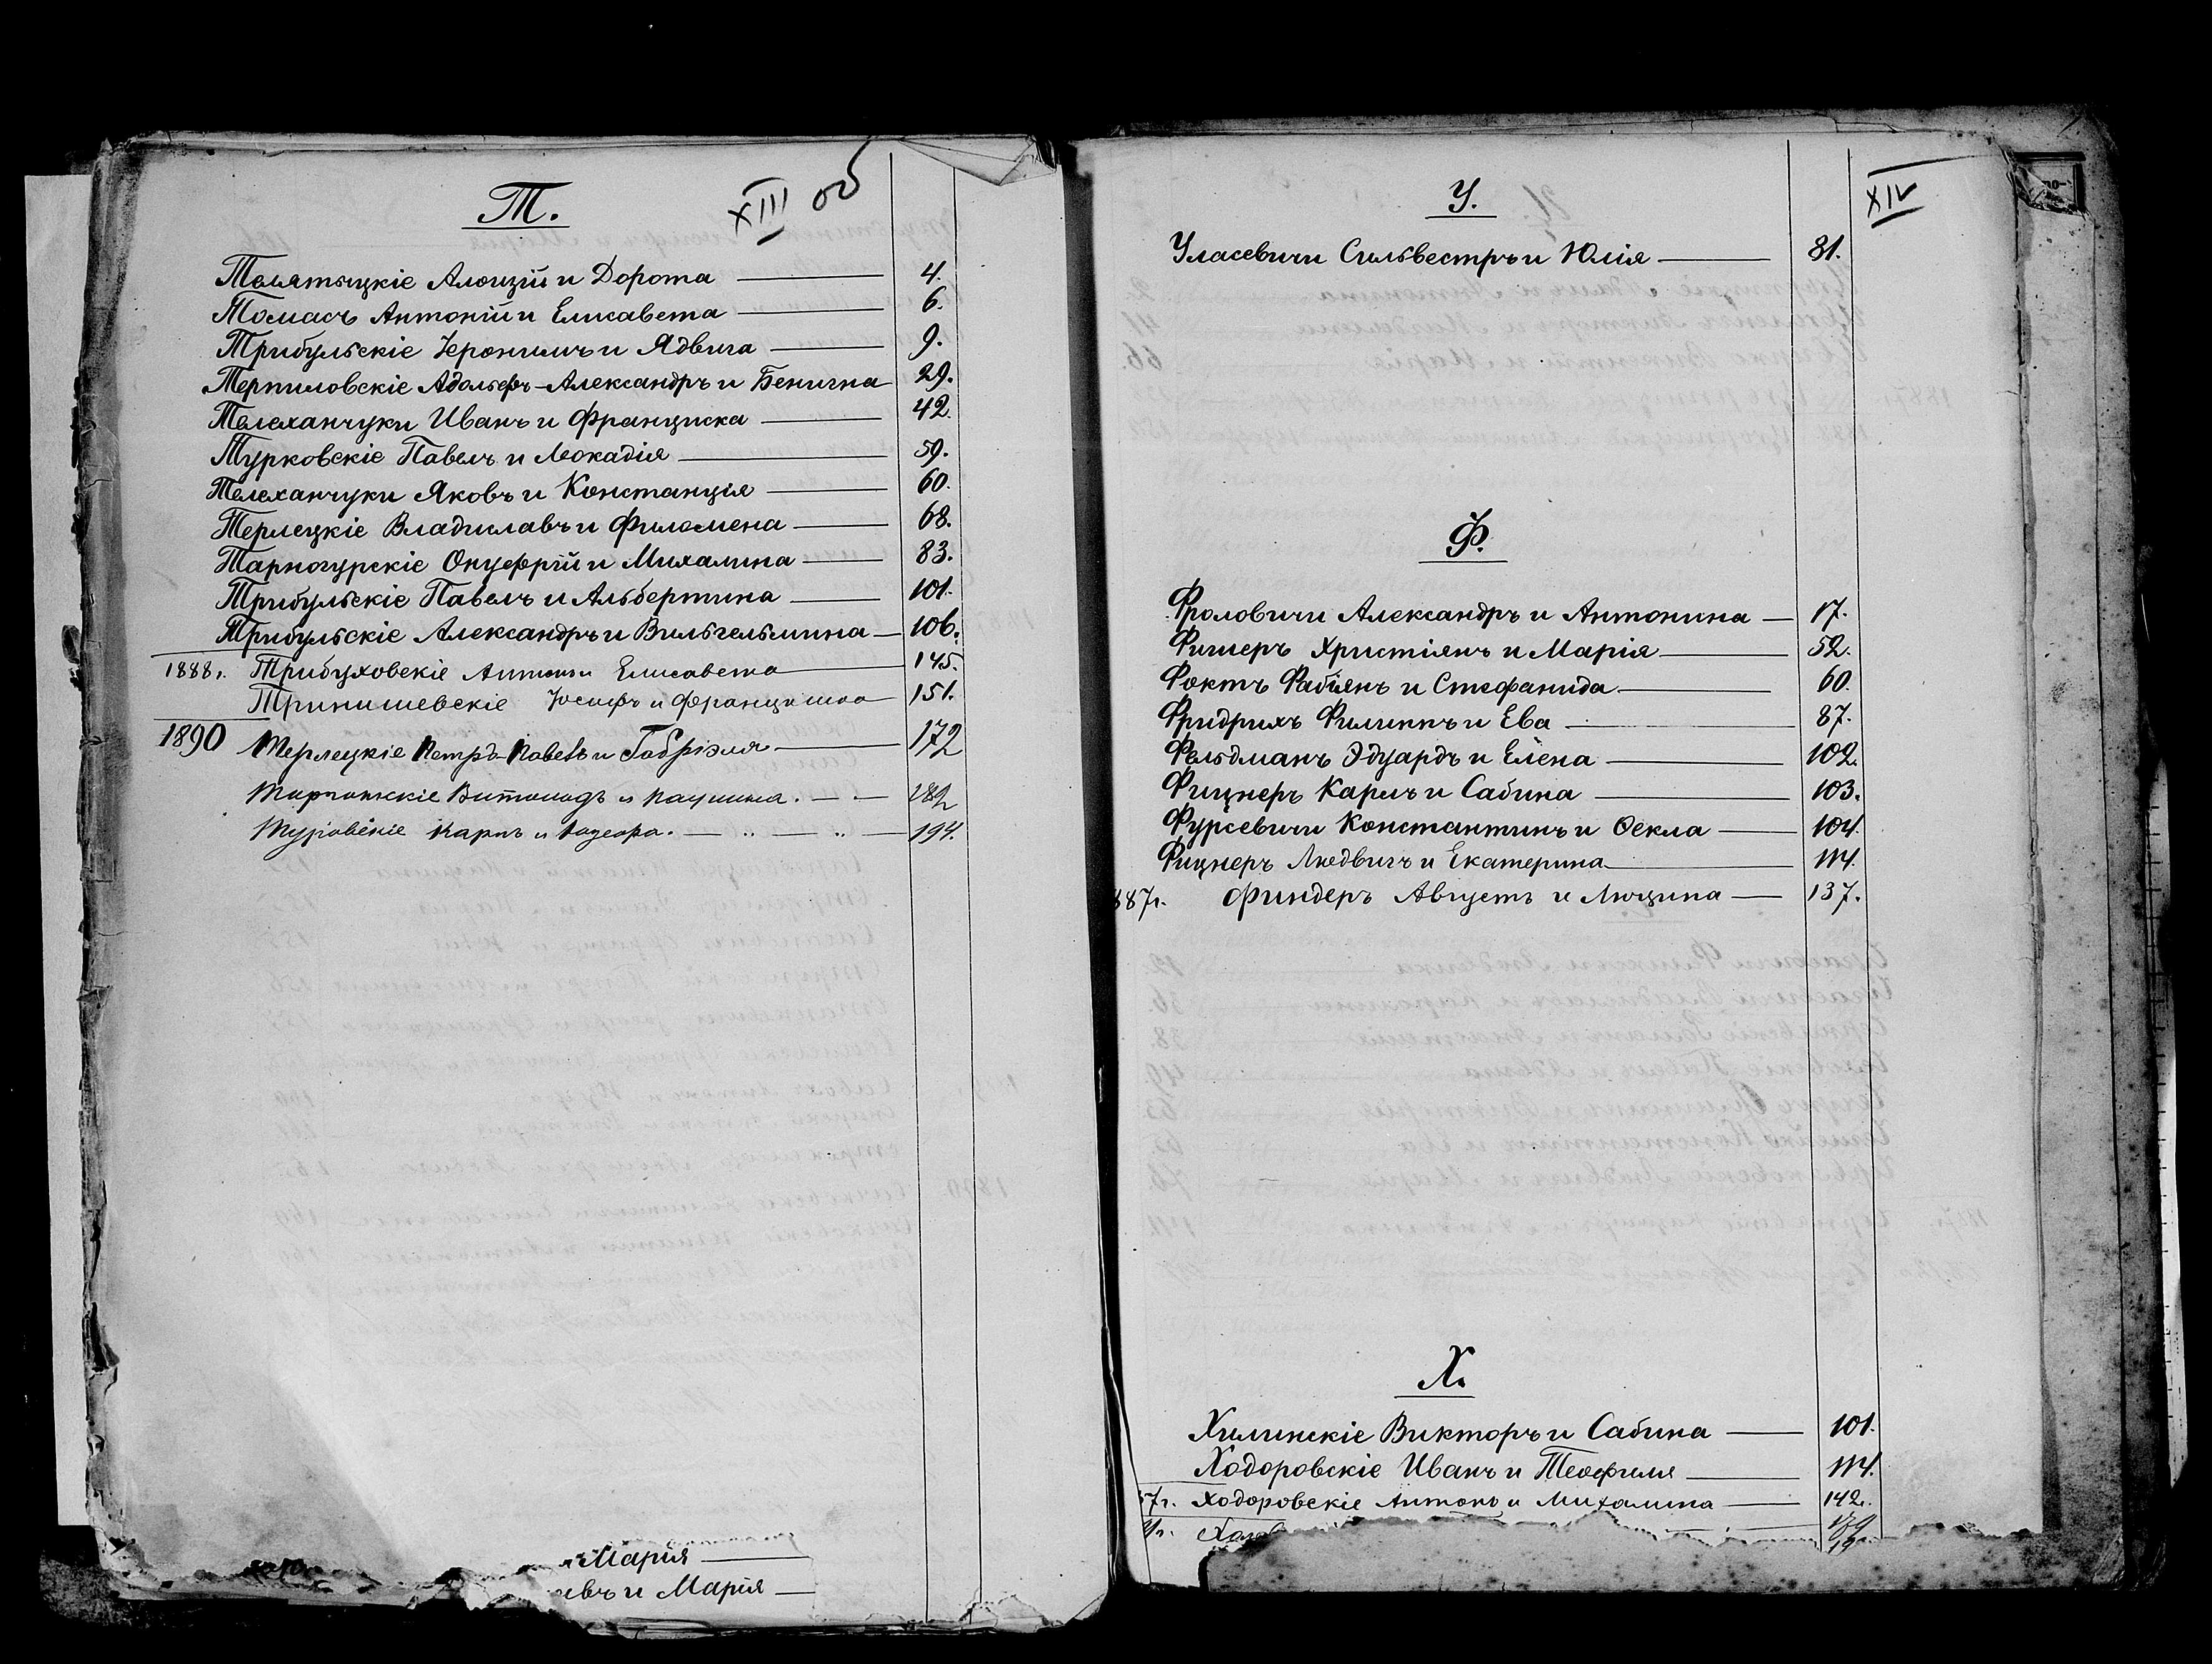 Т.
XIII об
Телятыцкіе Алоизій и Дорота 4.
Томасъ Антоній и Елисавета 6.
Трибульскіе Іеронимъ и Ядвига 9.
Терпиловскіе Адольфъ-Александръ и Бенигна 29.
Телеханчуки Иванъ и Франциска 42.
Турковскіе Павелъ и Леокадія 59.
Телеханчуки Яковъ и Констанція 60.
Терлецкіе Владиславъ и Филомена 68.
Тарногурскіе Онуфрій и Михалина 83.
Трибульскіе Павелъ и Альбертина 101.
Трибульскіе Александръ и Вильгельмина 106.
1888г. Трибуховскіе Антонъ и Елисавета 145.
Тринишевскіе Іосифъ и Францишка 151.
1890 Терлецкіе Петръ-Павелъ и Габріэля 172
Витольдъ и Паулина. 182
Карлъ и 194.
Мария
и Марія
XIV
У.
Уласевичи Сильвестръ и Юлія 81.
Ф.
Фроловичи Александръ и Антонина 17.
Фишеръ Христіянъ и Марія 52.
Фоктъ Фабіянъ и Стефанида 60.
Фридрихъ Филиппъ и Ева 87.
Фельдманъ Эдуардъ и Елена 102.
Фицнеръ Карлъ и Сабина 103.
Фурсевичи Константинъ и Ѳекла 104.
Фицнеръ Людвигъ и Екатерина 114.
887г. Финдеръ Августъ и Люцина 137.
Х.
Хилинскіе Викторъ и Сабина 101.
Ходоровскіе Иванъ и Теофиля 114.
7г. Ходоровскіе Антонъ и Михалина 142.